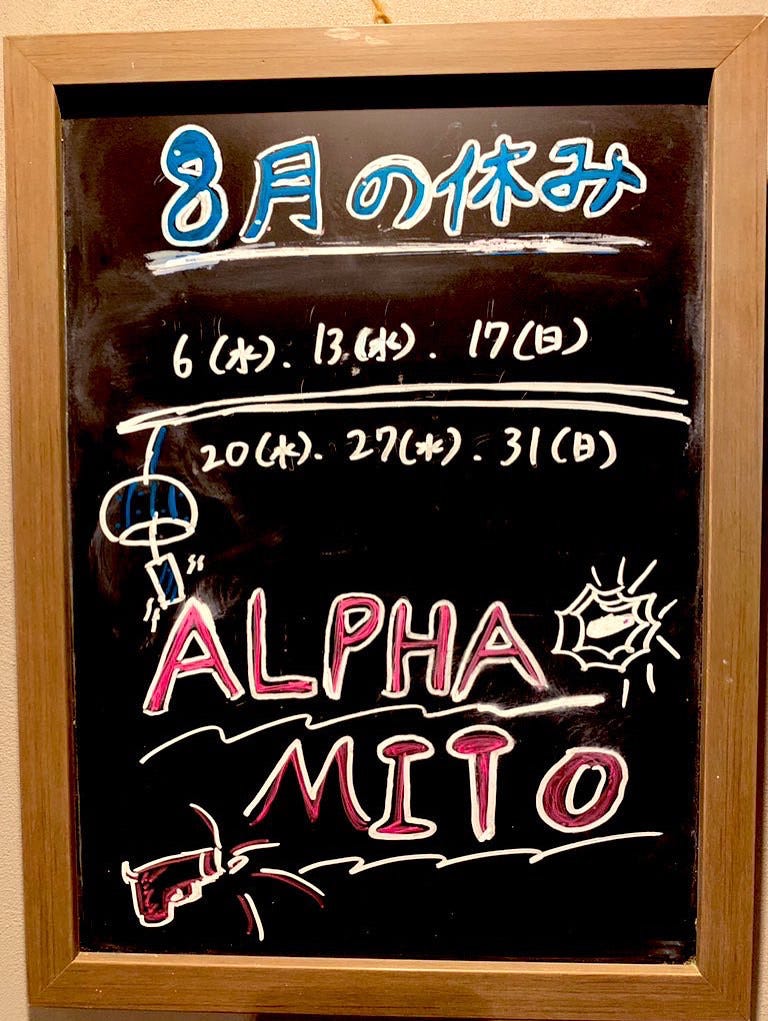 8月の休み
6(水). 13(水). 17(日)
20(水). 27(水). 31(日)
ALPHA
MITO